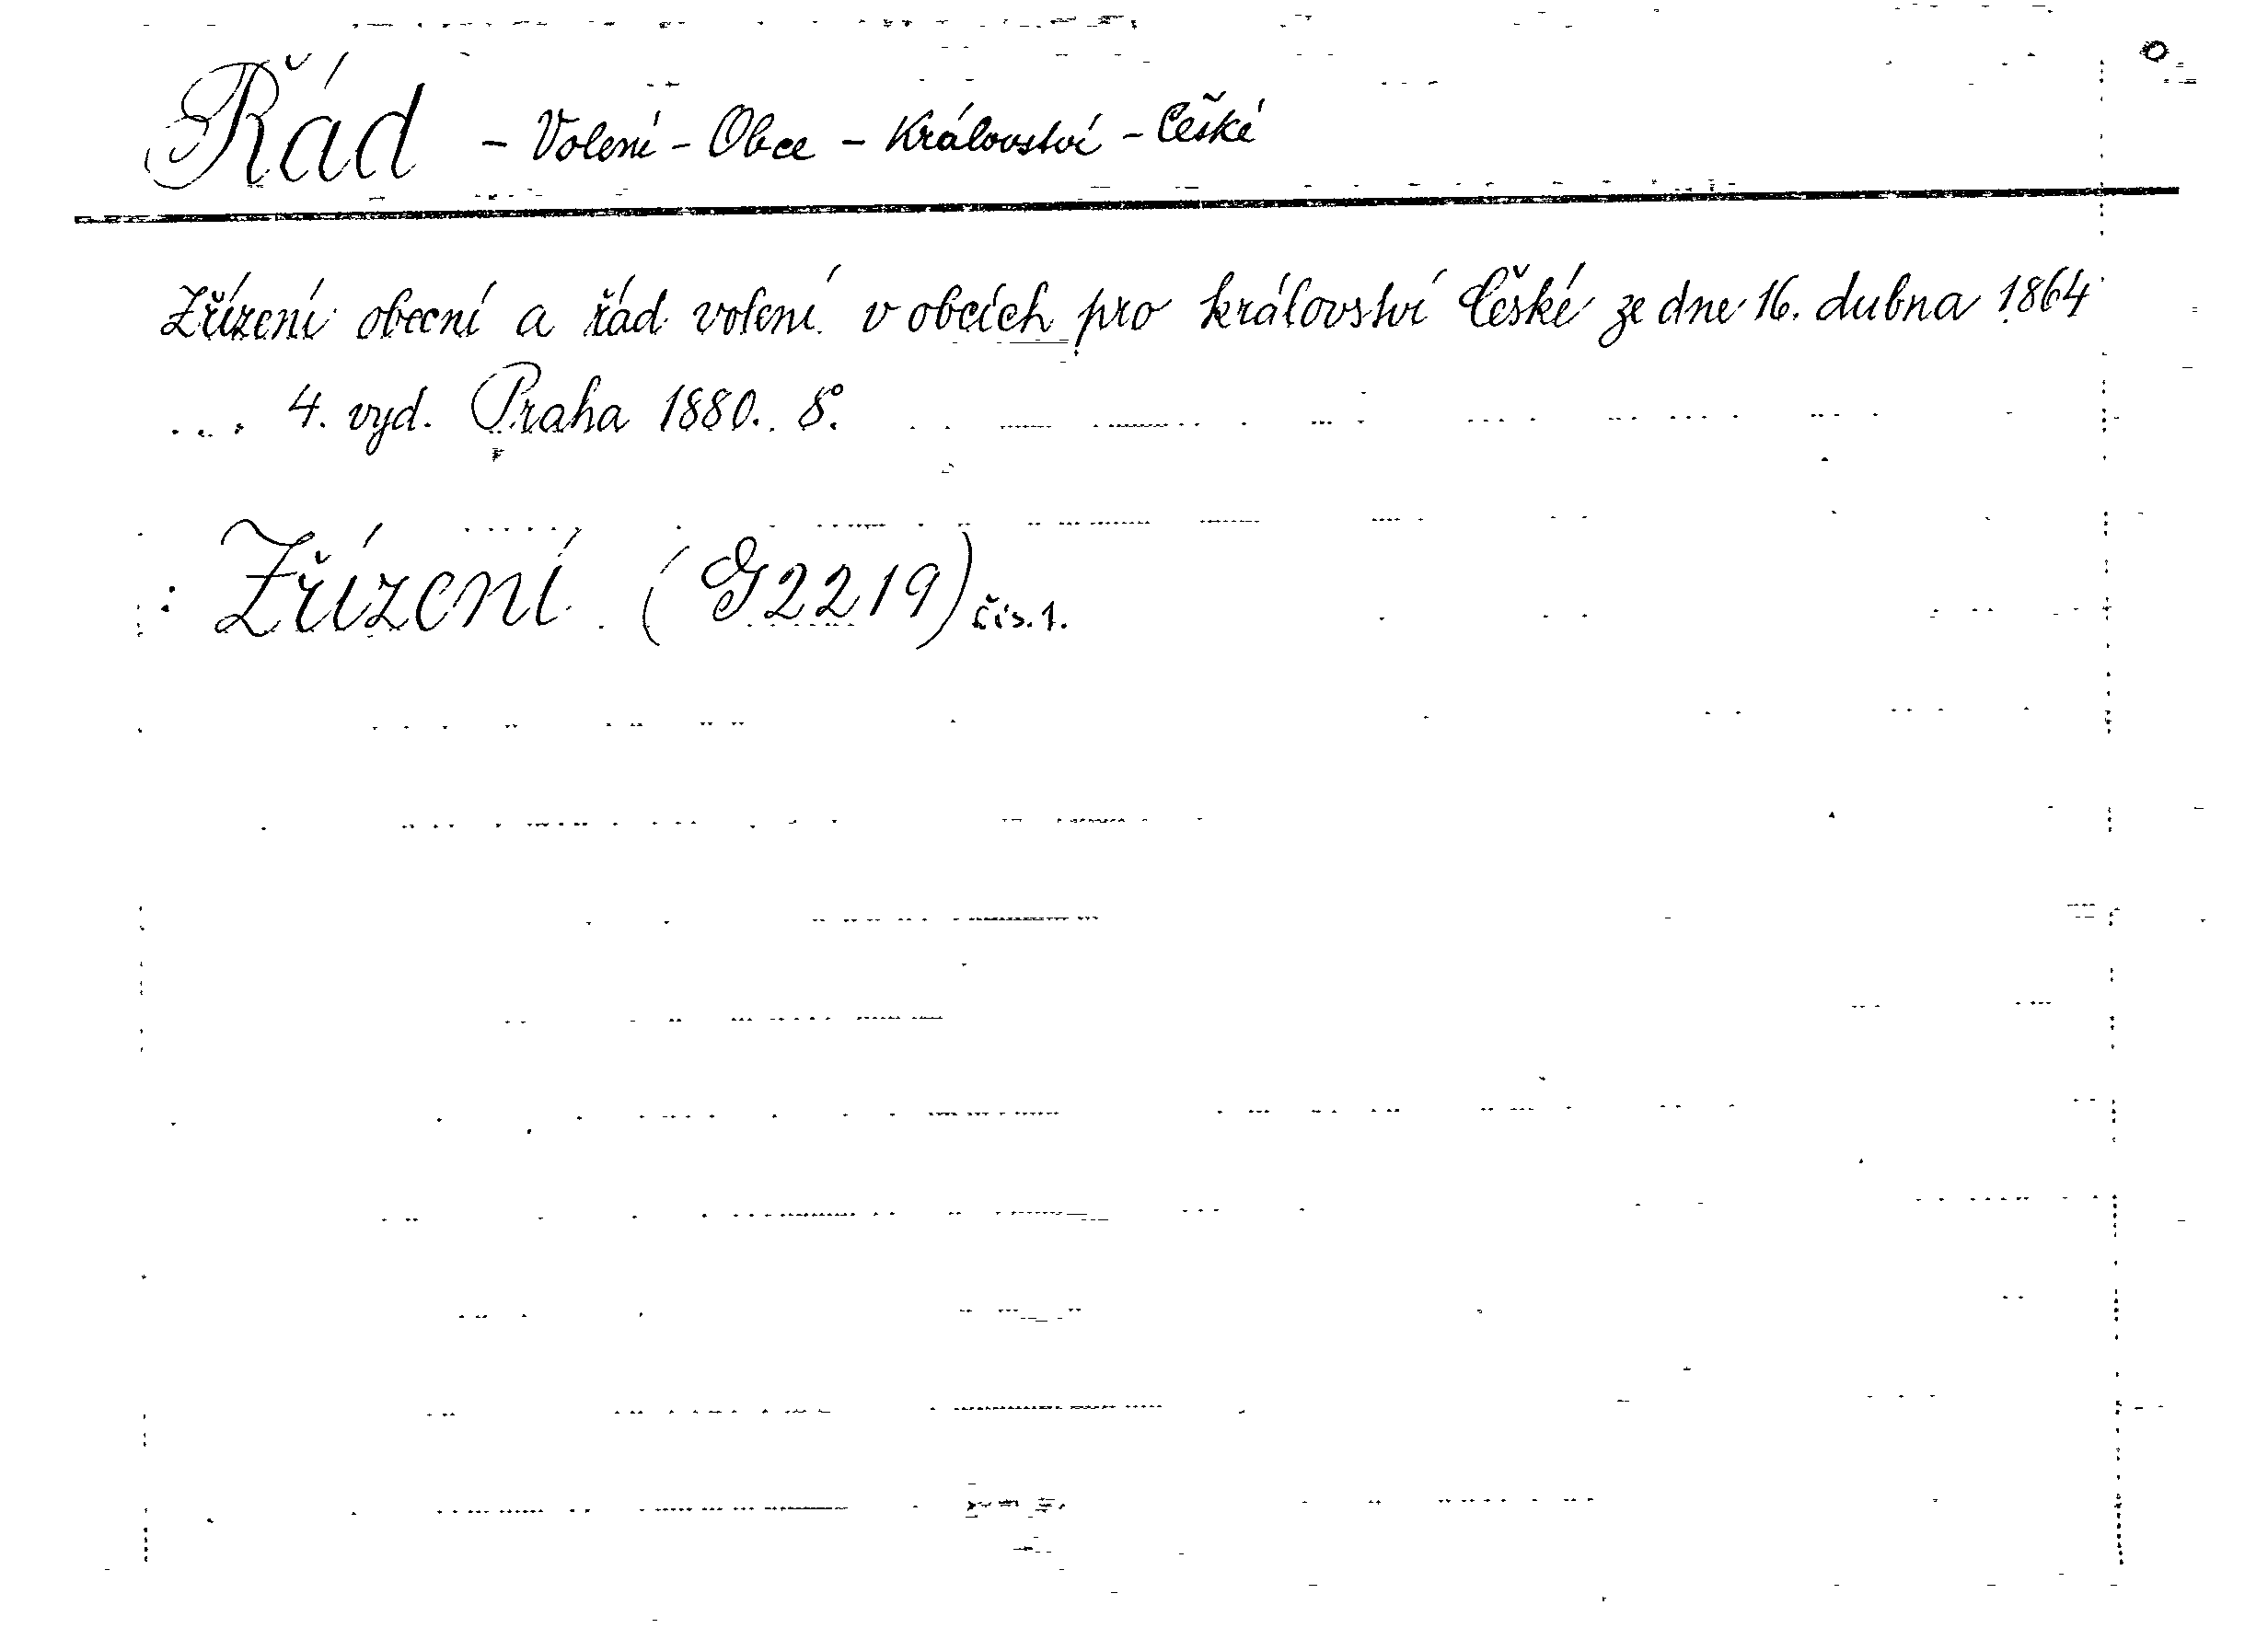 Řád - Volení - Obce - Království - České
Zřízení obecní a řád volení v obcích pro království České ze dne 16. dubna 1864
... 4. vyd. Praha 1880. 8°.
: Zřízení (G 2219) čís. 1.